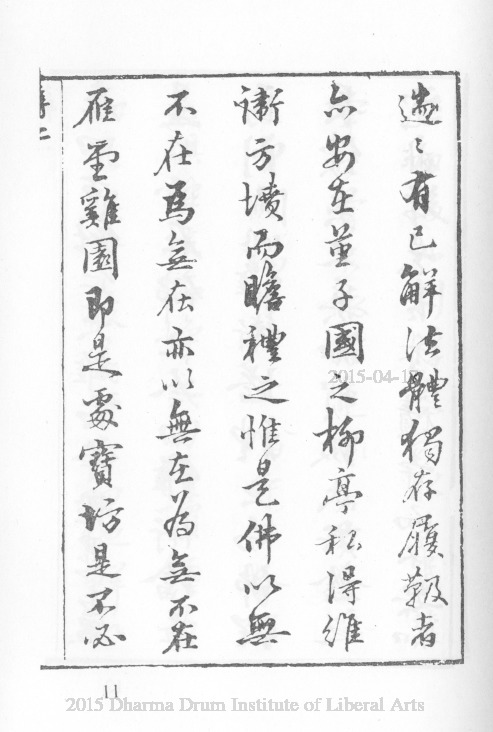 有已解法體獨存履靸者
亦安在堇子國之柳亭私得維
衛方墳而瞻禮之惟是佛以無
不在為無在亦以無在為無不在
雁堂雞園即是處寶坊是不必
2015-04-1
11
2015 Dharma Drum Institute of Liberal Arts